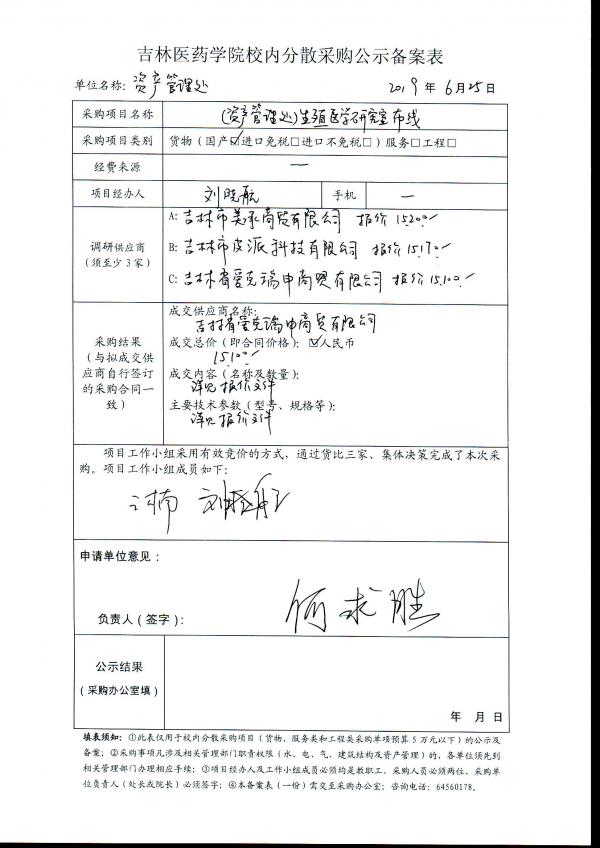 吉林医药学院校内分散采购公示备案表
单位名称：资产管理处 2019年6月25日
采购项目名称 (资产管理处)生殖医学研究室布线
采购项目类别 货物（国产☑进口免税□进口不免税□）服务□工程□
经费来源 —
项目经办人 刘晓航 手机 —
A: 吉林市美承商贸有限公司 报价15200/
调研供应商
（须至少3家）
B: 吉林市皮派科技有限公司 报价15170/
C: 吉林省爱克瑞申商贸有限公司 报价15100/
采购结果
（与拟成交供应商自行签订的采购合同一致）
成交供应商名称：
吉林省爱克瑞申商贸有限公司
成交总价（即合同价格）：☑人民币
15100/
成交内容（名称及数量）：
详见报价文件
主要技术参数（型号、规格等）：
详见报价文件
项目工作小组采用有效竞价的方式，通过货比三家、集体决策完成了本次采
购。项目工作小组成员如下：
刘晓航
申请单位意见：
负责人（签字）： 何求胜
公示结果
（采购办公室填）
年 月 日
填表须知：①此表仅用于校内分散采购项目（货物、服务类和工程类采购单项预算5万元以下）的公示及
备案；②采购事项凡涉及相关管理部门职责权限（水、电、气、建筑结构及资产管理）的，各单位须先到
相关管理部门办理相应手续；③项目经办人及工作小组成员必须均是教职工、采购人员必须两位、采购单
位负责人（处长或院长）必须签字；④本备案表（一份）需交至采购办公室；咨询电话：64560178。